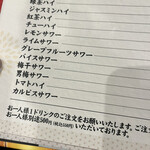 緑茶ハイ
ジャスミンハイ
紅茶ハイ
チューハイ
レモンサワー
ライムサワー
グレープフルーツサワー
バイスサワー
梅干サワー
男梅サワー
トマトハイ
カルピスサワー
お一人様1ドリンクのご注文をお願いいたします。ご
お一人様別途500円(税込550円)いただいております。